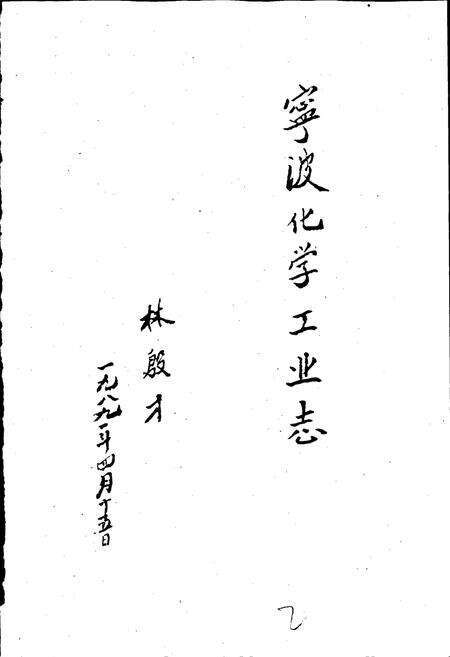 寧波化学工业志
林殷才
一九八九年四月十五日